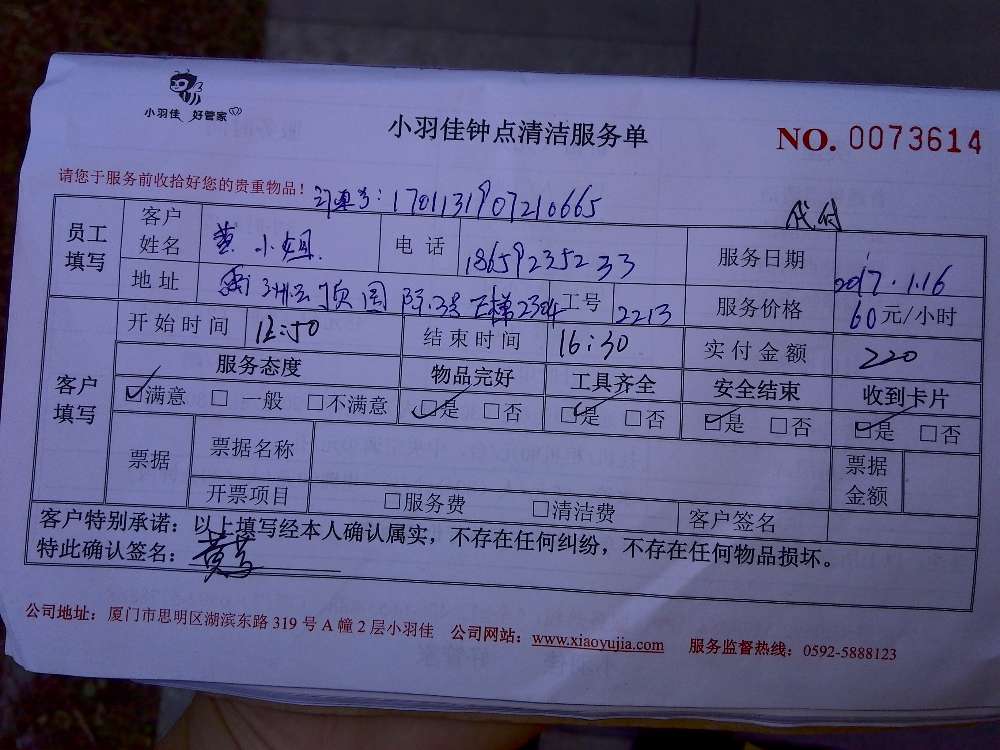 小羽佳 好管家
小羽佳钟点清洁服务单
NO. 0073614
请您于服务前收拾好您的贵重物品！
订单号：1701131907210665
代付
员工填写 客户姓名 黄小姐 电话 18659235233 服务日期 2017.1.16
地址 工号 2213 服务价格 60元/小时
客户填写 开始时间 12:50 结束时间 16:30 实付金额 220
服务态度 物品完好 工具齐全 安全结束 收到卡片
☑满意 □一般 □不满意 ☑是 □否 ☑是 □否 ☑是 □否 ☑是 □否
票据 票据名称 票据金额
开票项目 □服务费 □清洁费 客户签名
客户特别承诺：以上填写经本人确认属实，不存在任何纠纷，不存在任何物品损坏。
特此确认签名：
公司地址：厦门市思明区湖滨东路 319 号 A 幢 2 层小羽佳 公司网站：www.xiaoyujia.com 服务监督热线：0592-5888123